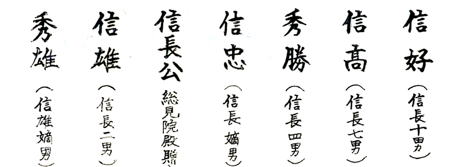 信好（信長十男）
信高（信長七男）
秀勝（信長四男）
信忠（信長嫡男）
信長公 総見院殿贈
信雄（信長二男）
秀雄（信雄嫡男）